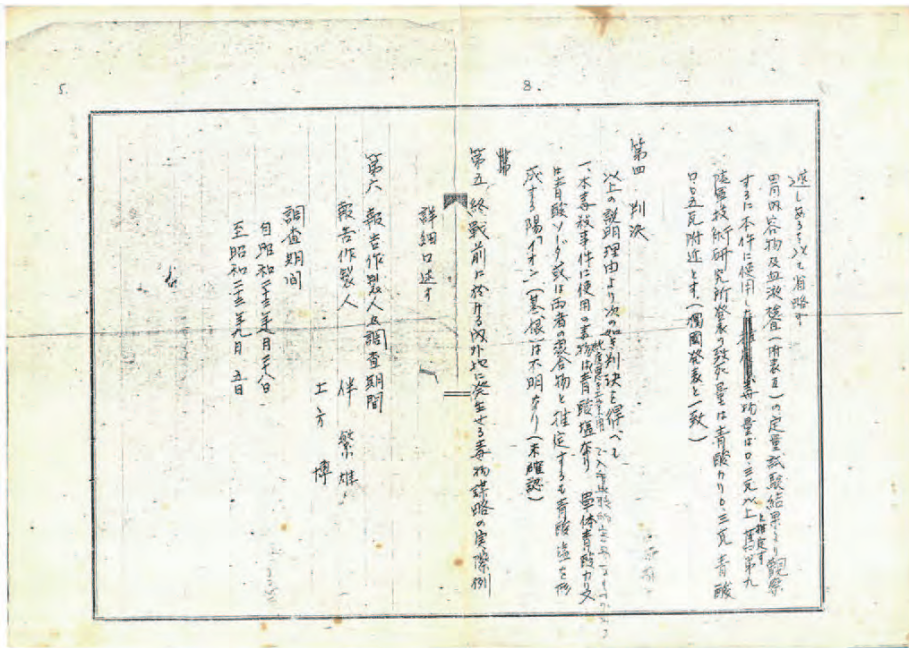 8.
述しあるを以て省略す
胃内容物及血液検査(附表Ⅱ)の定量試験結果より観察
するに本件に使用した毒物量は〇.三瓦以上と推定す 旧第九
陸軍技術研究所発表の致死量は青酸カリ〇.三瓦 青酸
〇.〇五瓦附近とす。(獨国発表と一致)
第四 判決
以上の説明理由より次の如き判決を得べし
一、本毒殺事件に使用の毒物は青酸塩なり 単体青酸カリ又
は青酸ソーダ或は両者の混合物と推定するも青酸塩を形
成する陽イオン(基根)は不明なり(未確認)
第五 終戦前に於ける内外地に発生せる毒物謀略の実際例
詳細口述す
5.
第六 報告作製人及調査期間
報告作製人 伴 繁雄
土方 博
調査期間
自昭和二十三年
至昭和二十三年九月 五日